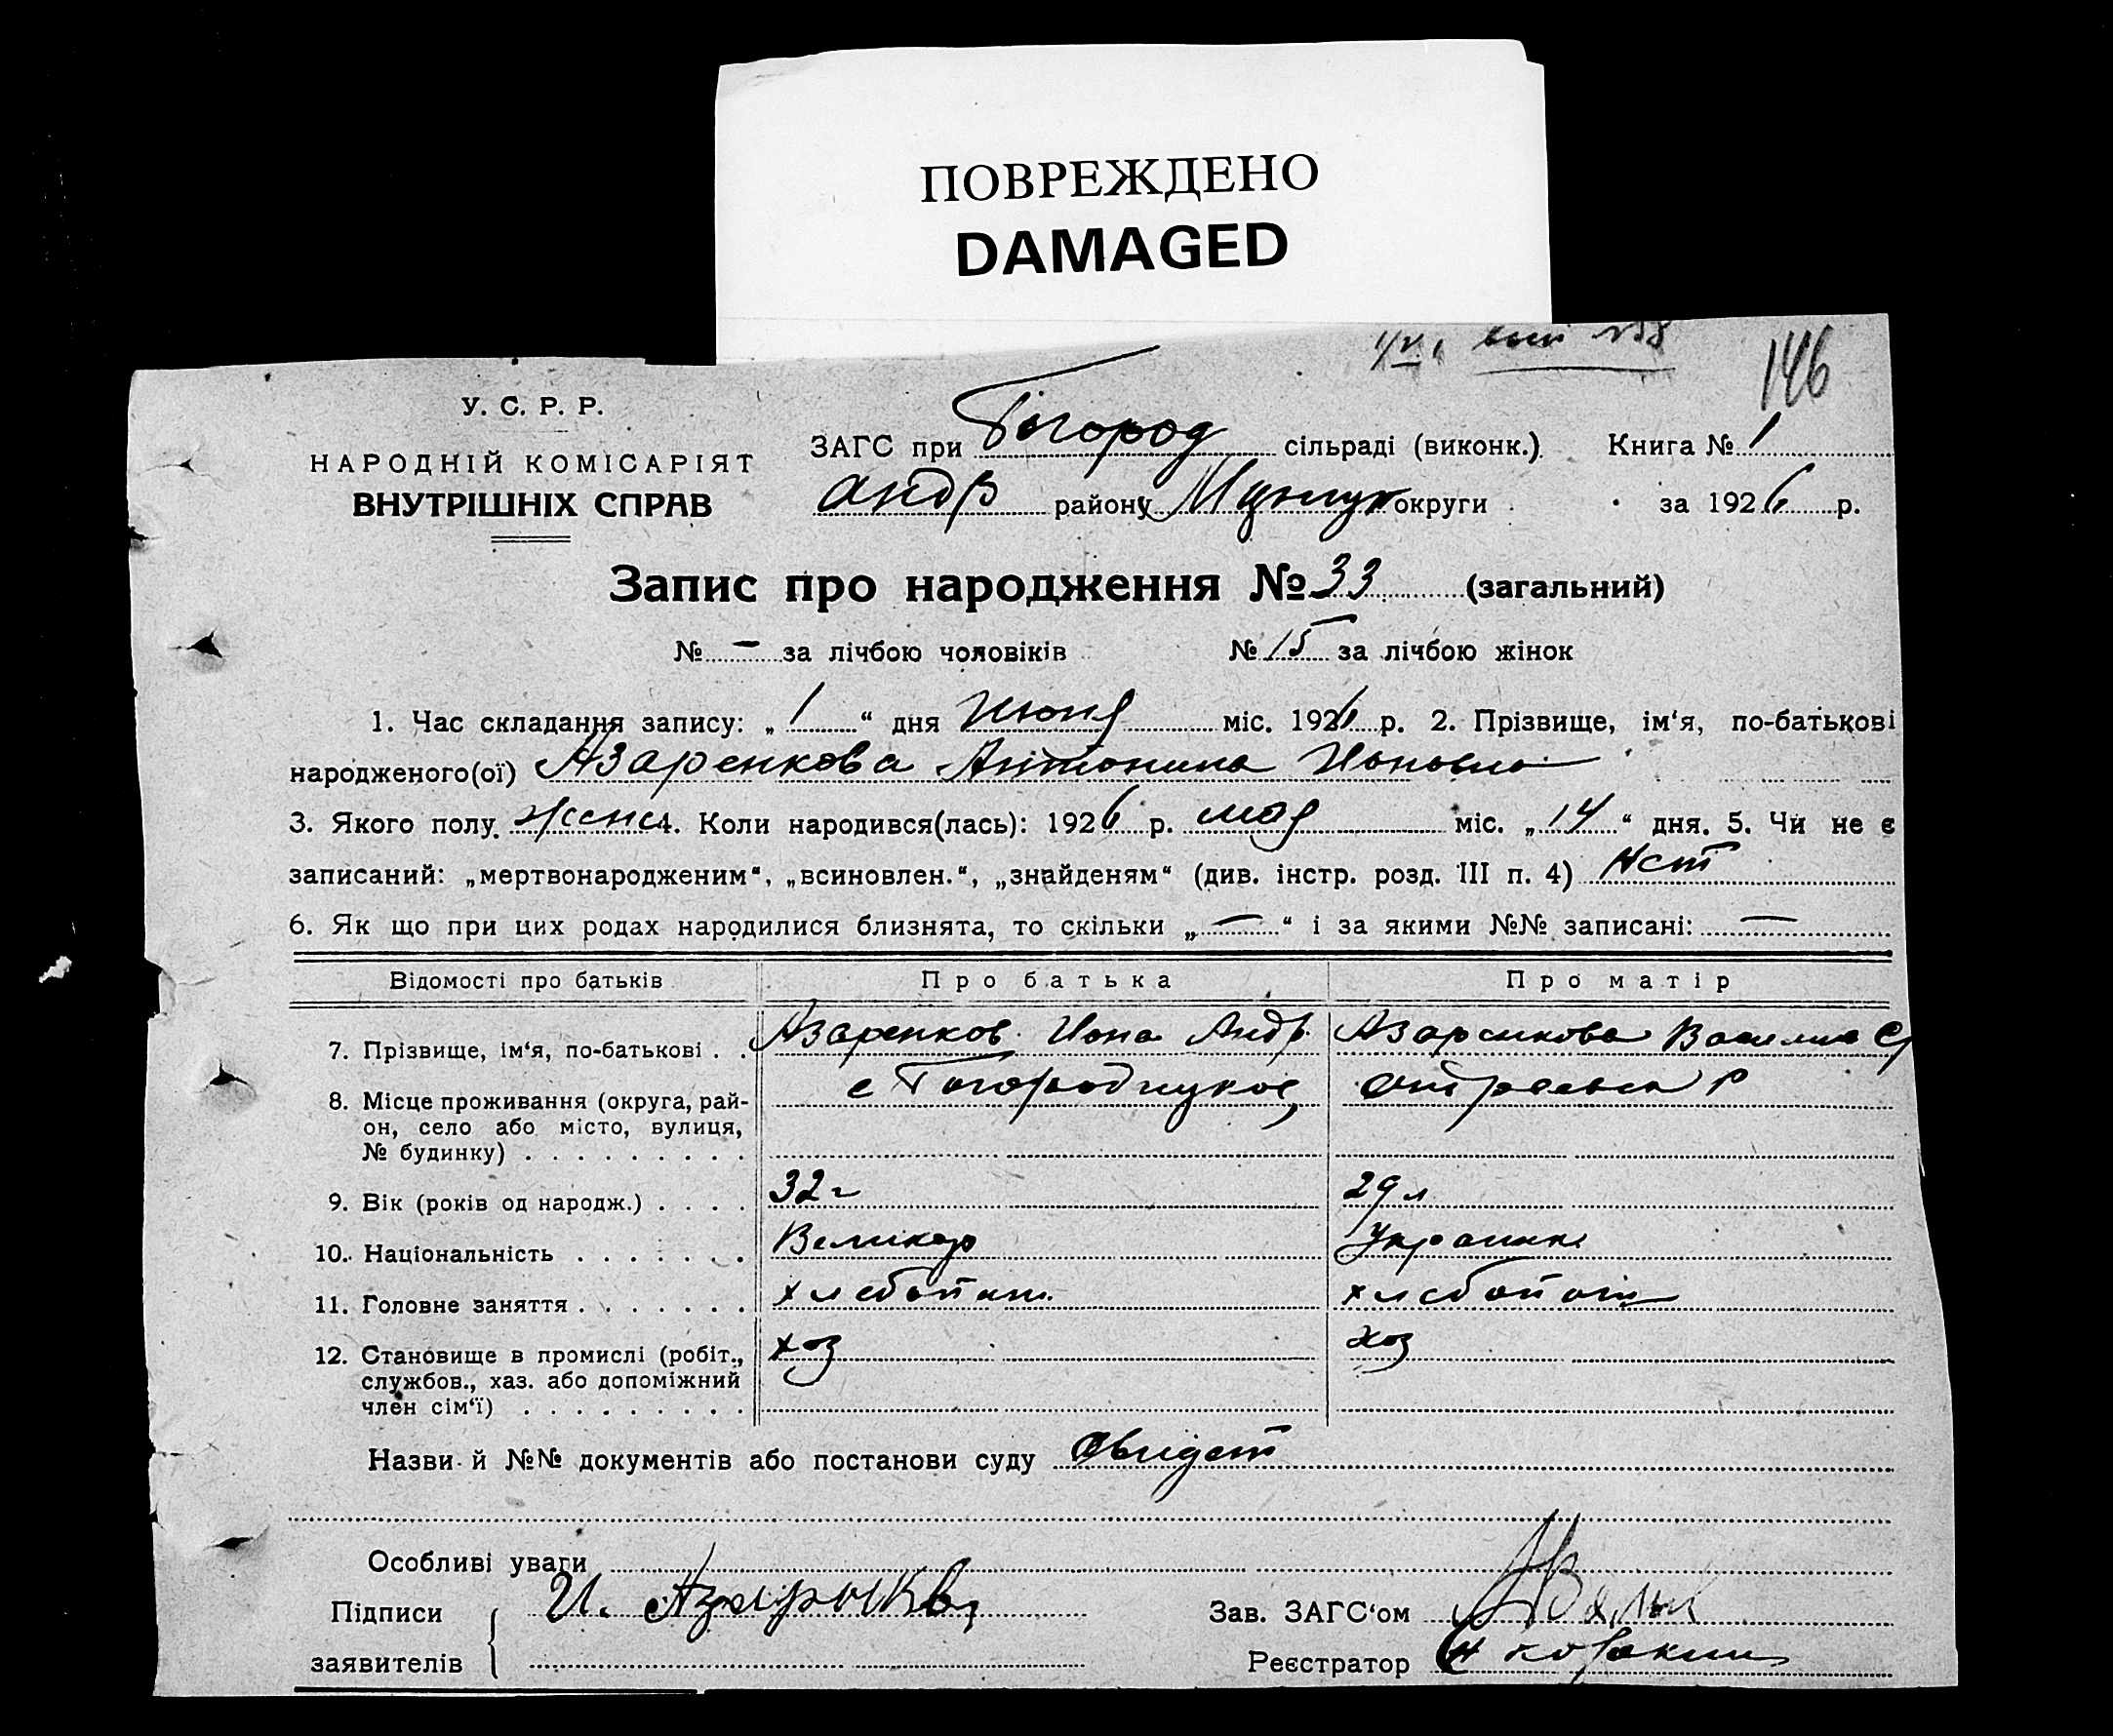 ПОВРЕЖДЕНО
DAMAGED
146
У. С. Р. Р.
НАРОДНІЙ КОМІСАРІЯТ
ВНУТРІШНІХ СПРАВ
ЗАГС при Тогород сільраді (виконк.). Книга № 1
Андр району округи за 1926 р.
Запис про народження № 33 (загальний)
№ — за лічбою чоловіків № 15 за лічбою жінок
1. Час складання запису: „ 1 “ дня Июня міс. 1926 р. 2. Прізвище, ім‘я, по-батькові
народженого(ої) Азаренкова Антонина Ионовна
3. Якого полу. женс 4. Коли народився(лась): 1926 р. мая міс. „ 14 “ дня. 5. Чи не є
записаний: „мертвонародженим“, „всиновлен.“, „знайденям“ (див. інстр. розд. III п. 4) Нет
6. Як що при цих родах народилися близнята, то скільки „ — “ і за якими №№ записані: —
Відомості про батьків Про батька Про матір
7. Прізвище, ім‘я, по-батькові . . Азаренков Иона Андр. Азаренкова Василиса
8. Місце проживання (округа, рай-
он, село або місто, вулиця,
№ будинку) . . . . . . . . . с
9. Вік (років од народж.) . . . . 32 г 29 л
10. Національність . . . . . . . Великор Украинк
11. Головне заняття . . . . . . . хлебопаш хлебопаш
12. Становище в промислі (робіт., хоз хоз
службов., хаз. або допоміжний
член сім‘ї) . . . . . . . . .
Назви й №№ документів або постанови суду
Особливі уваги
Підписи И. Азаренков Зав. ЗАГС‘ом
заявителів Реєстратор